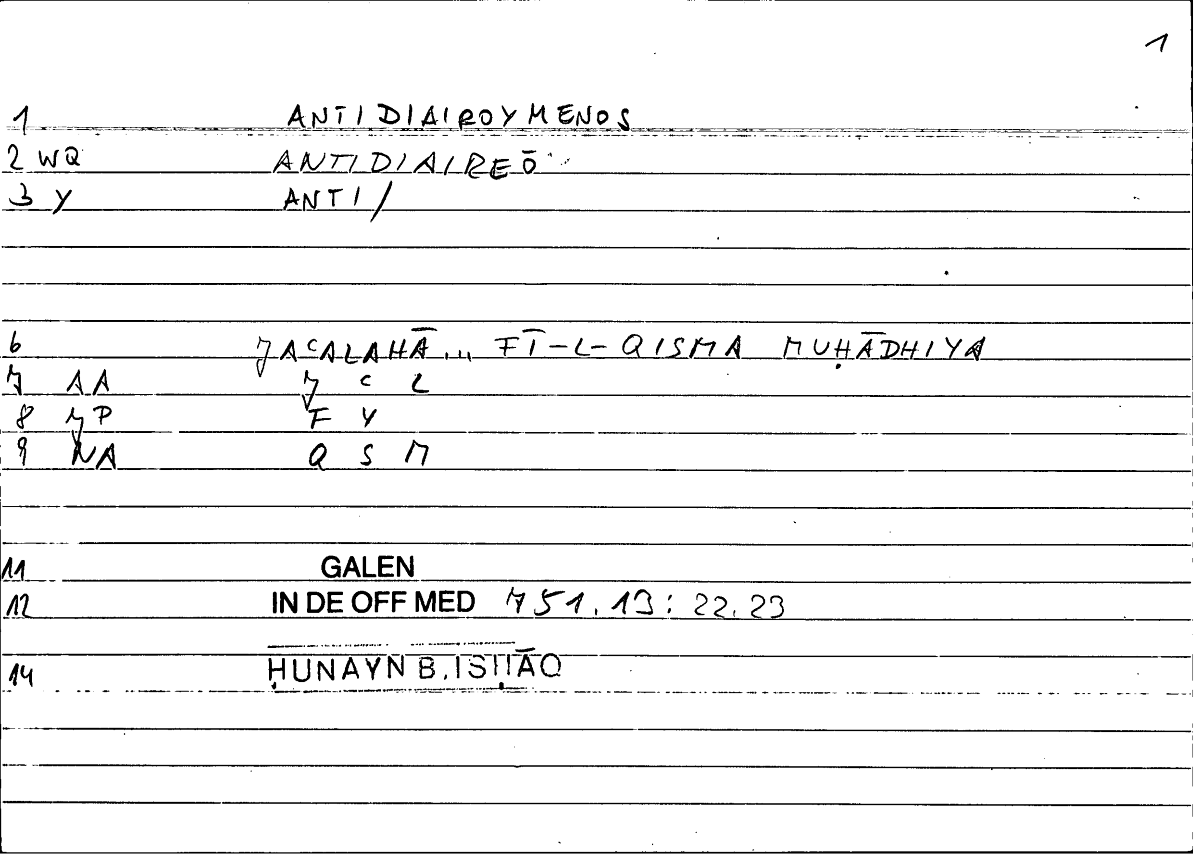 1
1 ANTIDIAIROYMENOS
2 WQ ANTIDIAIREŌ
3 Y ANTI/
6 JAʿALAHĀ... FĪ-L-QISMA MUḤĀDHIYA
7 AA J ʿ L
8 JP F Y
9 NA Q S M
11 GALEN
12 IN DE OFF MED 751.13: 22.23
14 ḤUNAYN B. ISḤĀQ